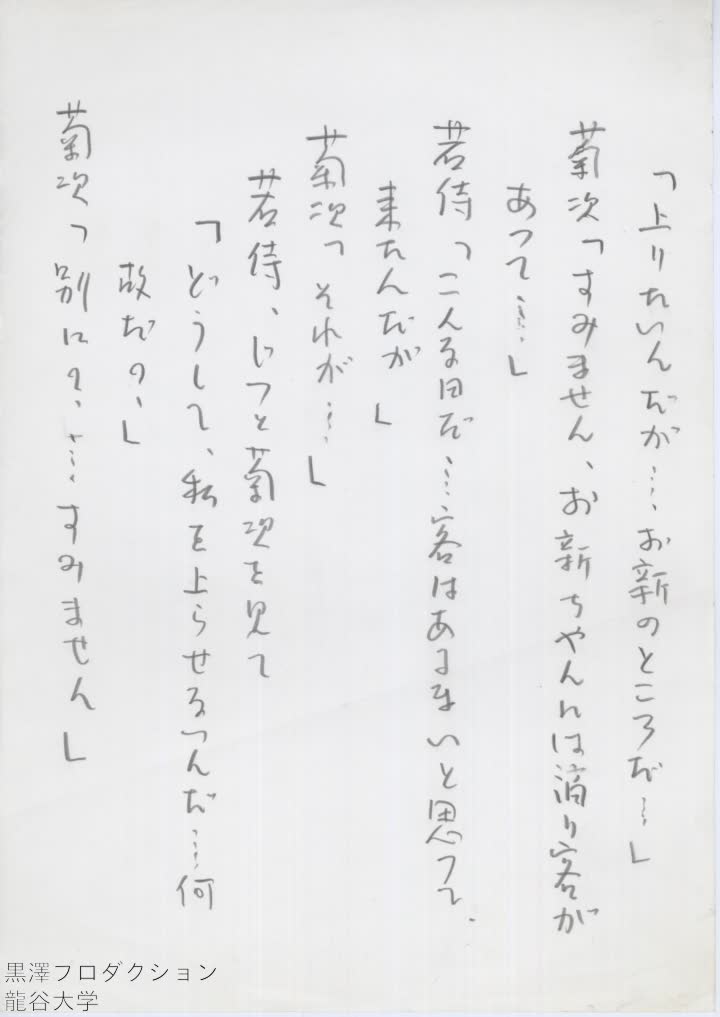 「上りたいんだが……お新のところだ…」
菊次「すみません、お新ちやんには滴り客が
あつて……」
若侍「こんな日だ……客はあるまいと思つて、
来たんだが」
菊次「それが……」
若侍、じつと菊次を見て
「どうして、私を上らせないんだ……何
故だの、」
菊次「別にの、……すみません」
黒澤プロダクション
龍谷大学